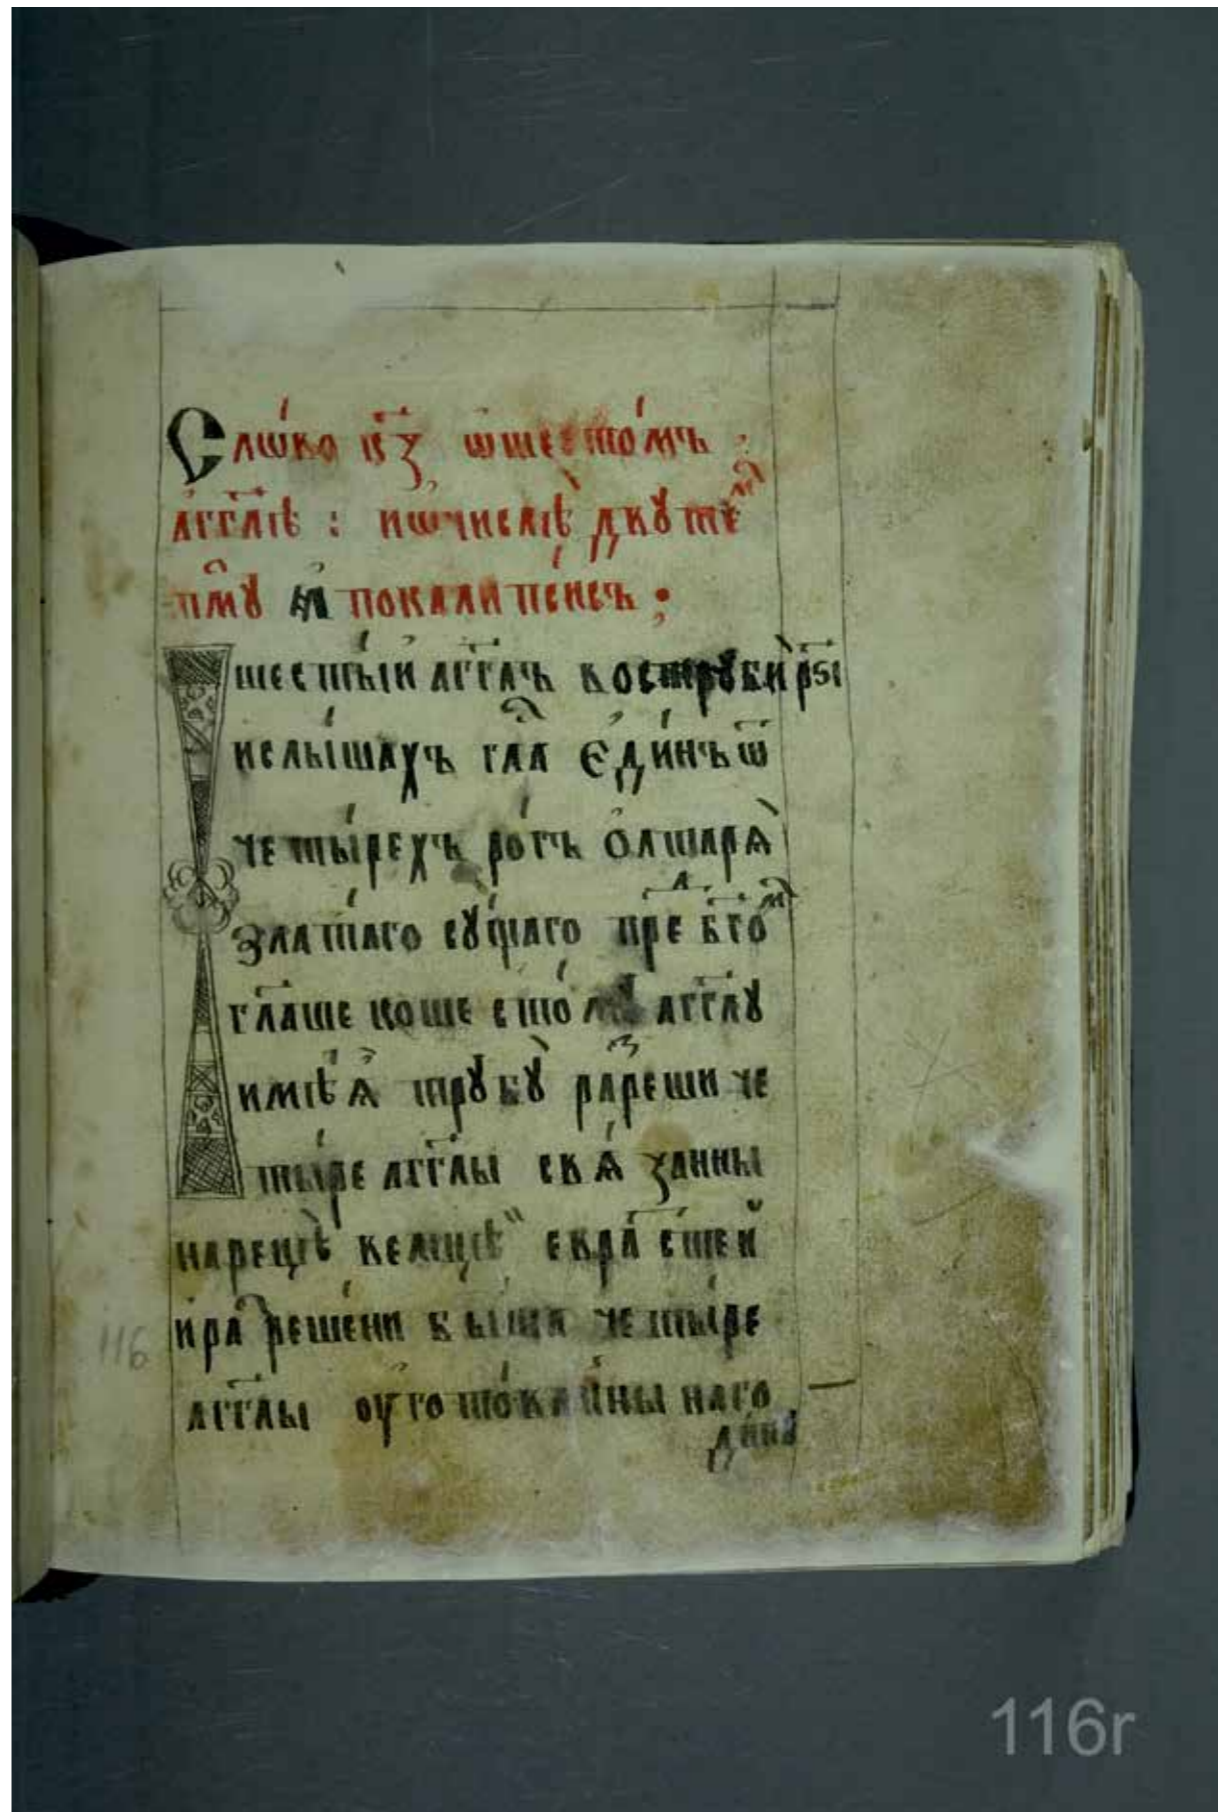 Сло́во в҃з ѡ҆шесто́мъ
а҆гг҃лѣ : иѡ҆числѣ̀ двꙋте
тм҃ꙋ а҆покали́псисъ :
И шесты́й агг҃лъ вострꙋбѝ рѕ҃і
ислы́шахъ гл҃а є҆ди́нъ ѿ
четы́рехъ ро́гъ о҆лтарѧ̀
златаго сꙋщаго пред бг҃ом
гл҃аше коше сто́мꙋ агг҃лꙋ
имѣ́ѧ трꙋбꙋ̀ разреши че
ты́ре агг҃лы свѧ́занны
нарецѣ̀ велицѣ евра҃стей
ира҆зреше́ни быша четы́ре
агг҃лы оу҆гото́ванны наго
дин
116
116r